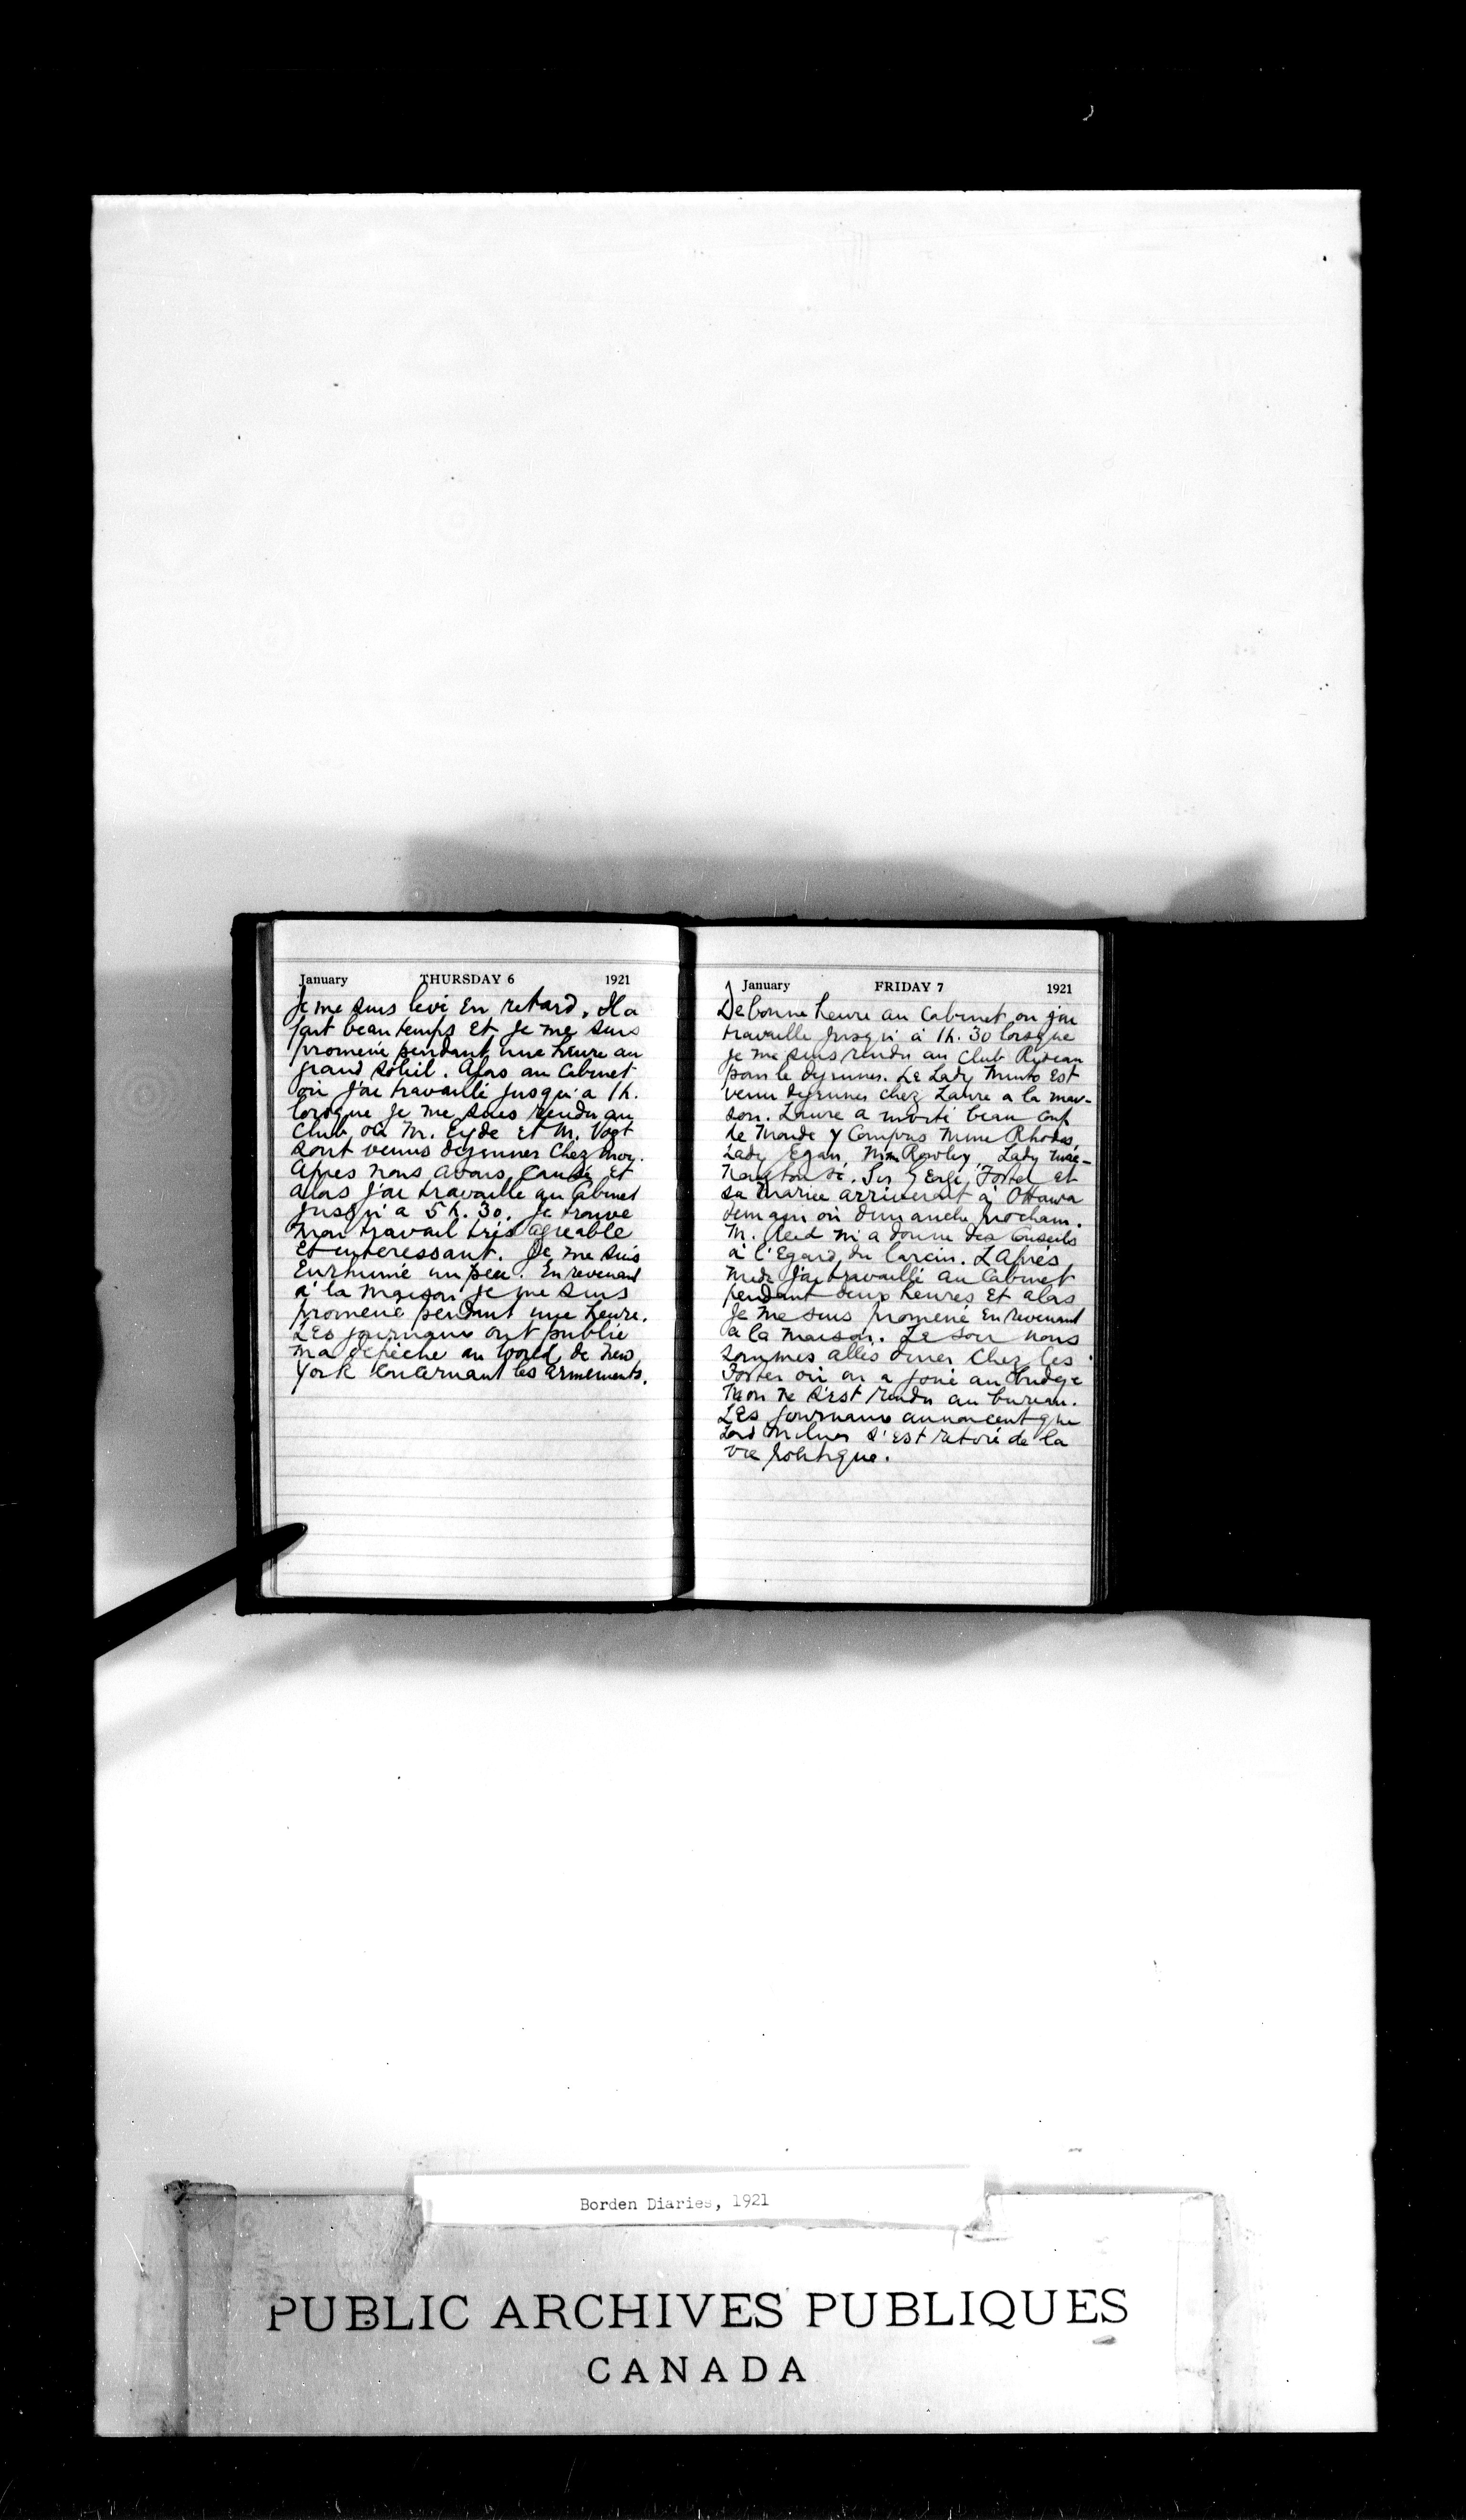 January THURSDAY 6 1921
Je me suis levé en retard. Il a
fait beau temps et je me suis
promené pendant une heure au
grand soleil. Alors au Cabinet
où j'ai travaillé jusqu'à 1h.
lorsque je me suis rendu au
Club où M. Eyde et M. Vogt
sont venus dejeuner chez moi.
Apres nous avons causé et
alors j'ai travaillé au Cabinet
jusqu'à 5h. 30. Je trouve
mon travail très agreable
et interessant. Je me suis
enrhumé un peu. En revenant
à la maison je me suis
promené pendant une heure.
Les journaux ont publié
ma depêche au World de New
York concernant les armements.
January FRIDAY 7 1921
De bonne heure au Cabinet où j'ai
travaillé jusqu'à 1h. 30 lorsque
je me suis rendu au Club Rideau
pour le dejeuner. La Lady Minto est
venu dejeuner chez Laure a la mai-
son. Laure a invité beau coup
de monde y compris Mme Rhodes,
Lady Egan, Mme Rowley, Lady
Sir G Foster et
sa mariee arriverent à Ottawa
demain où dimanche prochain.
M. Reid m'a donné des conseils
à l'egard du larcin. L'après
midi j'ai travaillé au Cabinet
pendant deux heures et alors
je me suis promené en revenant
à la maison. Le soir nous
sommes allés diner chez les
Foster où on a joué au bridge
ne s'est rendu au bureau.
Les journaux annoncent que
Lord Milner s'est retiré de la
vie politique.
Borden Diaries, 1921
PUBLIC ARCHIVES PUBLIQUES
CANADA